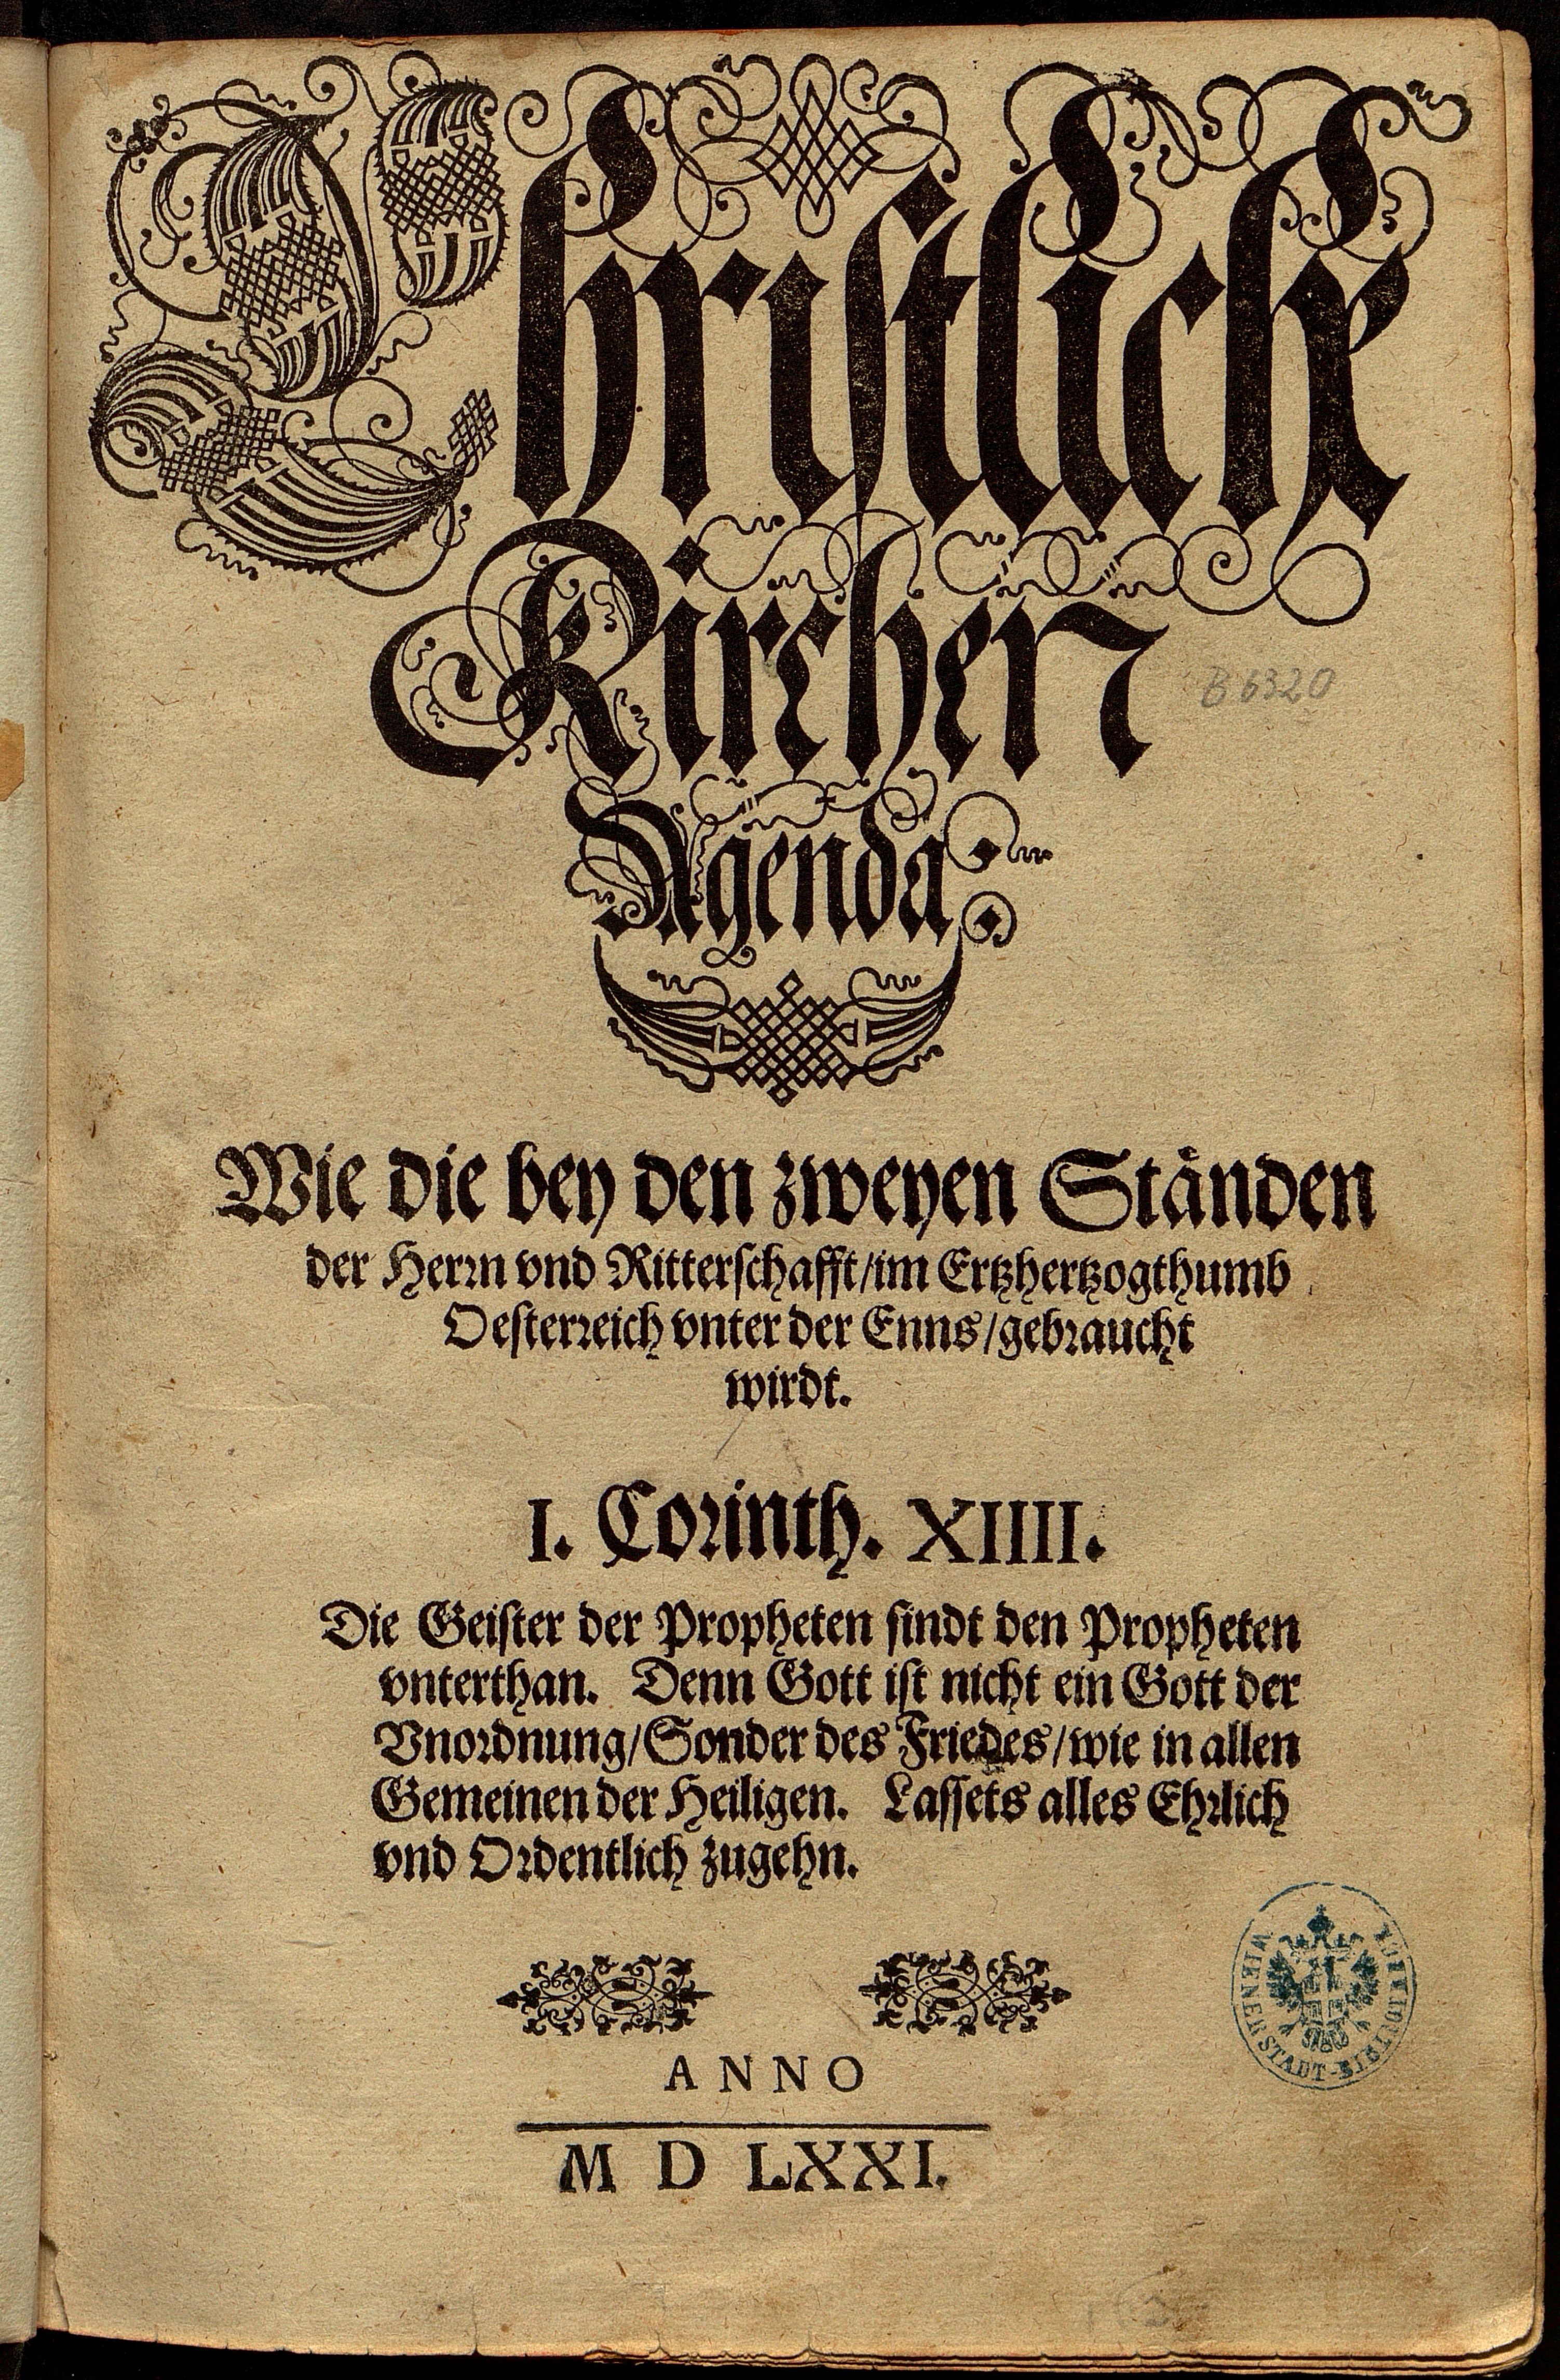 Christliche
Kirchen
Agenda.
B 6320
Wie die bey den zweyen Ständen
der Herrn vnd Ritterschafft/im Ertzhertzogthumb
Oesterreich vnter der Enns/gebraucht
wirdt.
I. Corinth. XIIII.
Die Geister der Propheten sindt den Propheten
vnterthan. Denn Gott ist nicht ein Gott der
Vnordnung/Sonder des Friedes/wie in allen
Gemeinen der Heiligen. Lassets alles Ehrlich
vnd Ordentlich zugehn.
WIENER STADT-BIBLIOTHEK
ANNO
M D LXXI.